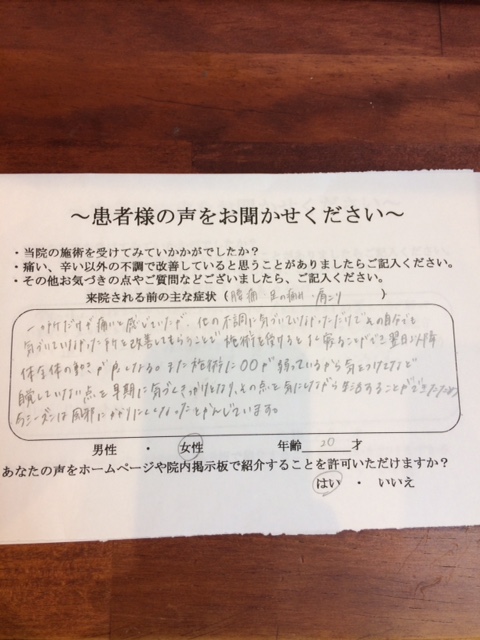 ～患者様の声をお聞かせください～
・当院の施術を受けてみていかかがでしたか？
・痛い、辛い以外の不調で改善していると思うことがありましたらご記入ください。
・その他お気づきの点やご質問などございましたら、ご記入ください。
来院される前の主な症状（腰痛・足の痛み・肩こり）
一ヶ所だけが痛いと感じていたが、他の不調に気づいていなかっただけでその自分でも
気づいていなかった所を改善してもらうことで施術を受けるとよく寝ることができ翌日以降
体全体の動きが良くなる。また施術に〇〇が弱っているから気をつけてなど
自覚していない点を早期に気づくきっかけとなり、その点を気にしながら生活することができたため
今シーズンは風邪にかかりにくくなったとかんじています。
男性 ・ 女性 年齢 20 才
あなたの声をホームページや院内掲示板で紹介することを許可いただけますか？
はい ・ いいえ